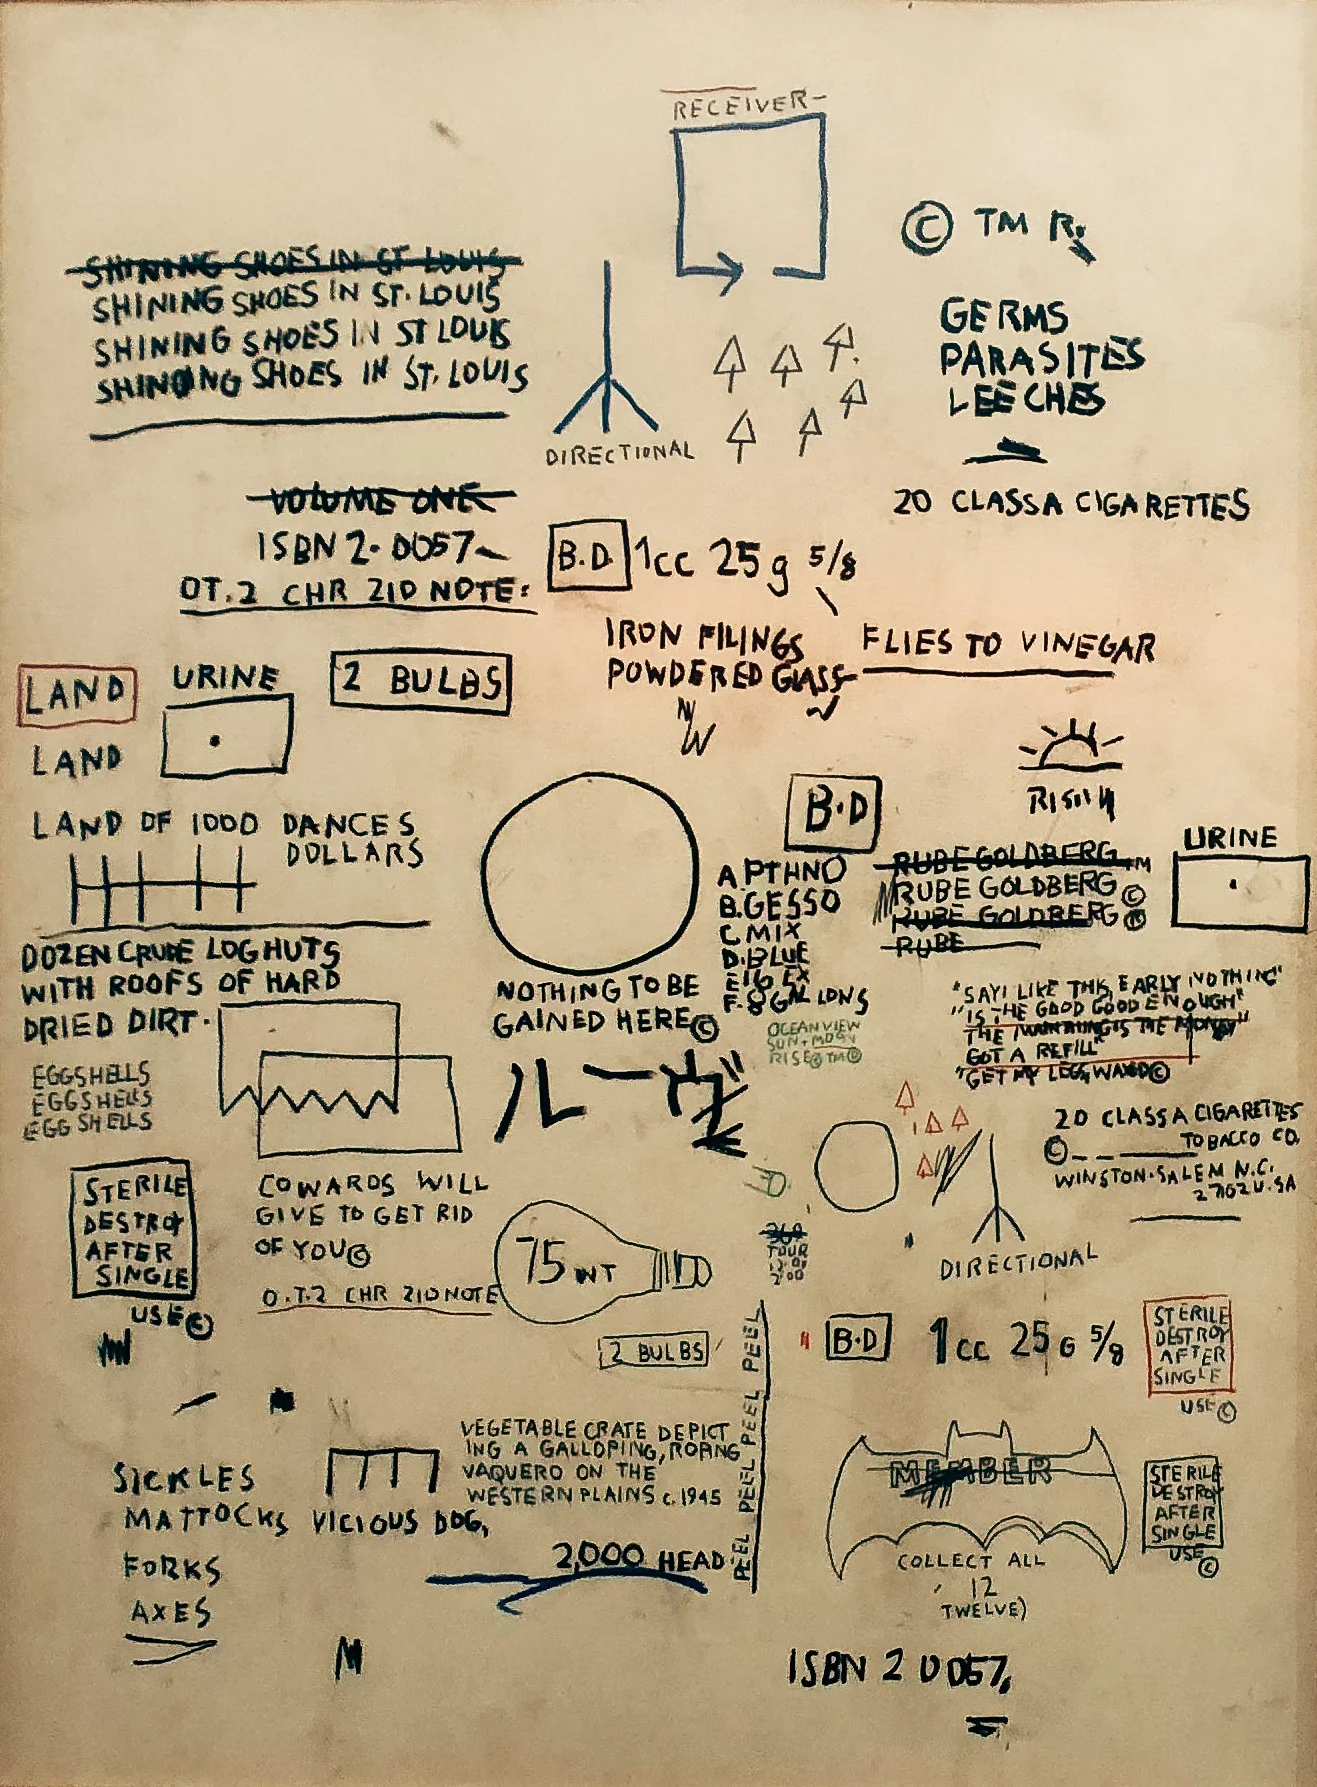 RECEIVER-
© TM R.
SHINING SHOES IN ST LOUIS
SHINING SHOES IN ST. LOUIS
SHINING SHOES IN ST LOUIS
SHINING SHOES IN ST. LOUIS
DIRECTIONAL
GERMS
PARASITES
LEECHES
20 CLASS A CIGARETTES
VOLUME ONE
ISBN 2-0057
OT.2 CHR 210 NOTE:
B.D. 1cc 25g 5/8
IRON FILINGS
POWDERED GLASS
FLIES TO VINEGAR
LAND
LAND
URINE
2 BULBS
LAND OF 1000 DANCES
DOLLARS
DOZEN CRUDE LOG HUTS
WITH ROOFS OF HARD
DRIED DIRT.
EGGSHELLS
EGGSHELLS
EGG SHELLS
NOTHING TO BE
GAINED HERE©
B.D
A.PTHNO
B.GESSO
C.MIX
D.BLUE
E16 EX
F.8 GALLONS
OCEANVIEW
SUN + MOON
RISE® TM®
RUBE GOLDBERG TM
RUBE GOLDBERG ©
RUBE GOLDBERG ®
RUBE
URINE
"SAY I LIKE THIS, EARLY NOTHING"
"IS THE GOOD GOOD ENOUGH"
GOT A REFILL"
"GET MY LEGS WAXED©
20 CLASS A CIGARETTES
© TOBACCO CO.
WINSTON-SALEM N.C.
27102 U.SA
DIRECTIONAL
STERILE
DESTROY
AFTER
SINGLE
USE©
COWARDS WILL
GIVE TO GET RID
OF YOU©
O.T.2 CHR 210 NOTE
75 WT
2 BULBS
TOUR
PEEL PEEL PEEL PEEL PEEL
B.D 1cc 25G 5/8
STERILE
DESTROY
AFTER
SINGLE
USE©
VEGETABLE CRATE DEPICT
ING A GALLOPING, ROPING
VAQUERO ON THE
WESTERN PLAINS c.1945
SICKLES
MATTOCKS VICIOUS DOG,
FORKS
AXES
2,000 HEAD
MEMBER
COLLECT ALL
12
TWELVE)
STERILE
DESTROY
AFTER
SINGLE
USE©
ISBN 2 0057